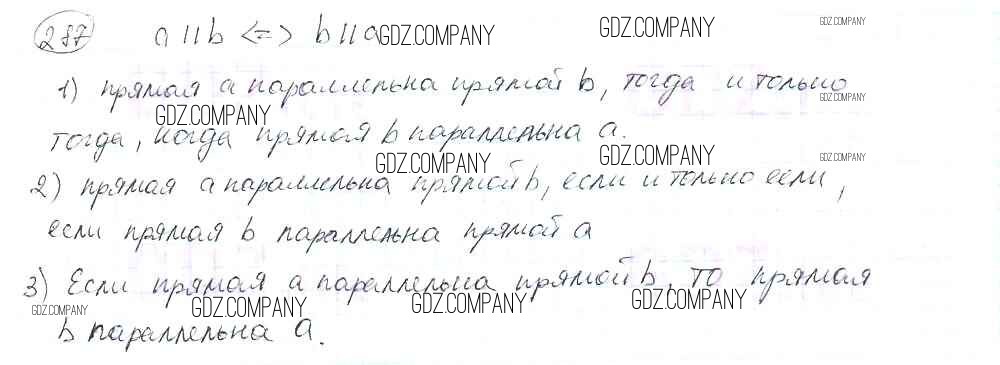 287 a || b <=> b || a
1) прямая a параллельна прямой b, тогда и только
тогда, когда прямая b параллельна a.
2) прямая a параллельна прямой b, если и только если,
если прямая b параллельна прямой a
3) Если прямая a параллельна прямой b, то прямая
b параллельна a.
GDZ.COMPANY
GDZ.COMPANY
GDZ.COMPANY
GDZ.COMPANY
GDZ.COMPANY
GDZ.COMPANY
GDZ.COMPANY
GDZ.COMPANY
GDZ.COMPANY
GDZ.COMPANY
GDZ.COMPANY
GDZ.COMPANY
GDZ.COMPANY